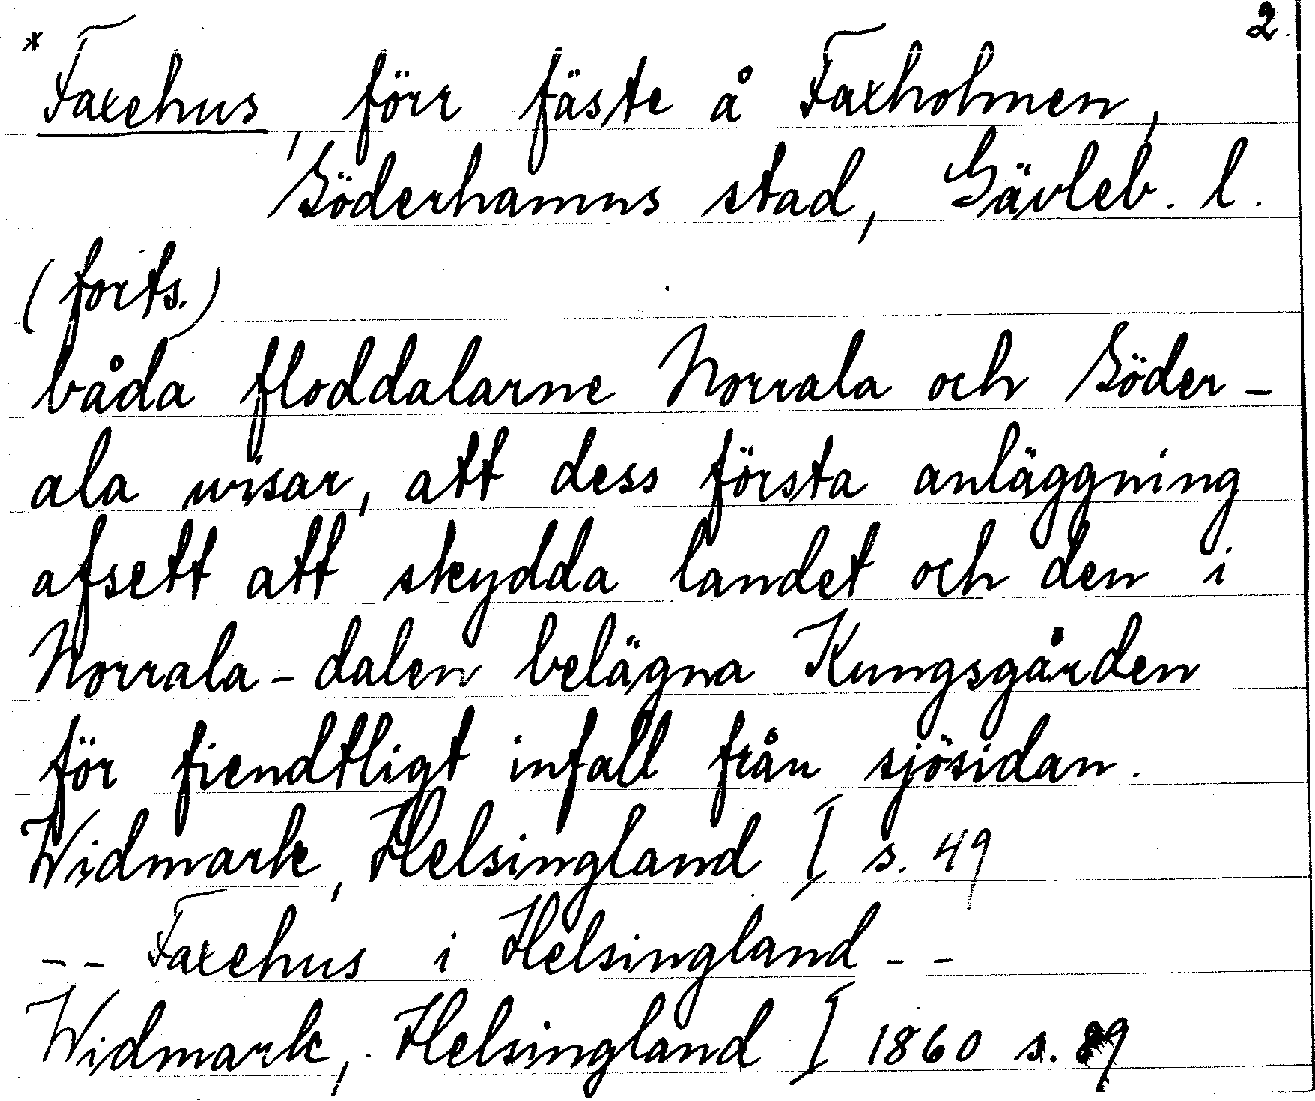 2.
* Faxehus, förr fäste å Faxholmen,
Söderhamns stad, Gävleb. l.
(forts.)
båda floddalarne Norrala och Söder-
ala wisar, att dess första anläggning
afsett att skydda landet och den i
Norrala-dalen belägna Kungsgården
för fiendtligt infall från sjösidan.
Widmark, Helsingland I s. 49
-- Faxehus i Helsingland --
Widmark, Helsingland I 1860 s. 89